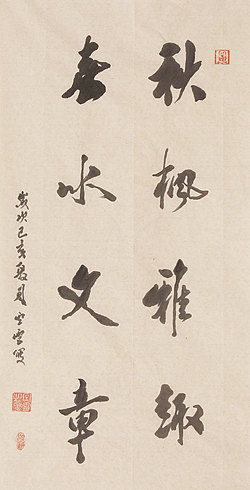 秋楓雅趣
春水文章
歲次己亥夏月